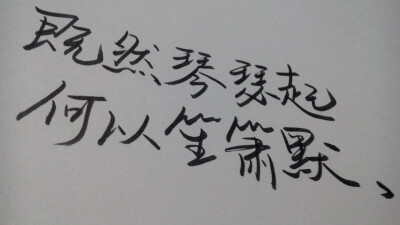 既然琴瑟起
何以笙箫默、